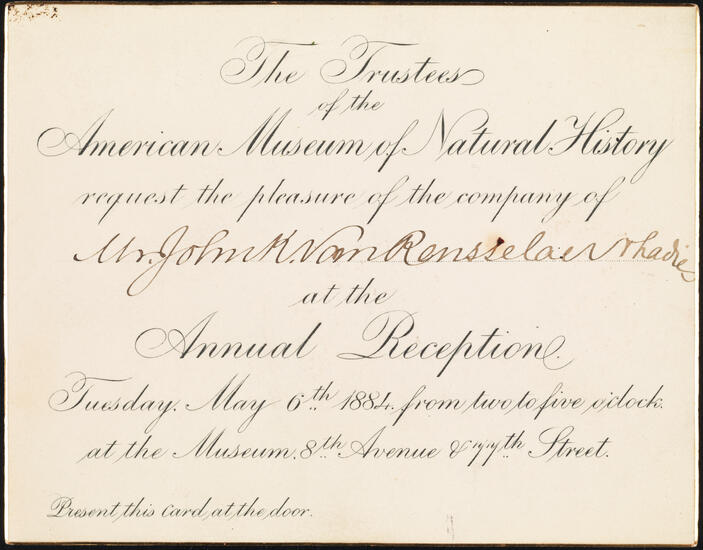 The Trustees
of the
American Museum of Natural History
request the pleasure of the company of
Mr. John K. Van Rensselaer & ladies
at the
Annual Reception.
Tuesday. May 6th. 1884. from two to five o'clock.
at the Museum. 8th. Avenue & 77th. Street.
Present this Card at the door.